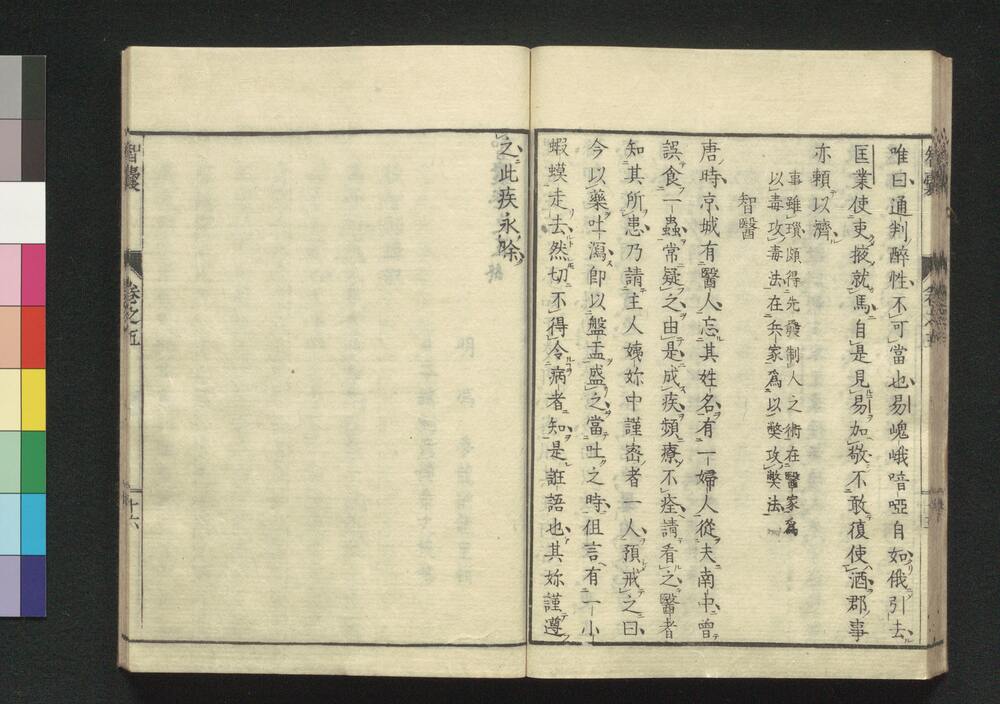 唯曰通判醉性不可當也易嵬峨喑啞自如俄引去
匡業使吏掖就馬自是見易加敬不敢復使酒郡事
亦賴以濟
事雖瑣頗得先發制人之術在醫家爲
以毒攻毒法在兵家爲以獘攻獘法
智醫
唐時京城有醫人忘其姓名有一婦人從夫南中曾
誤食一蟲常疑之由是成疾頻療不痊請看之醫者
知其所患乃請主人姨妳中謹密者一人預戒之曰
今以藥吐瀉卽以盤盂盛之當吐之時但言有一小
蝦蟆走去然切不得令病者知是誑語也其妳謹遵
之此疾永除
智囊
卷之五
十六